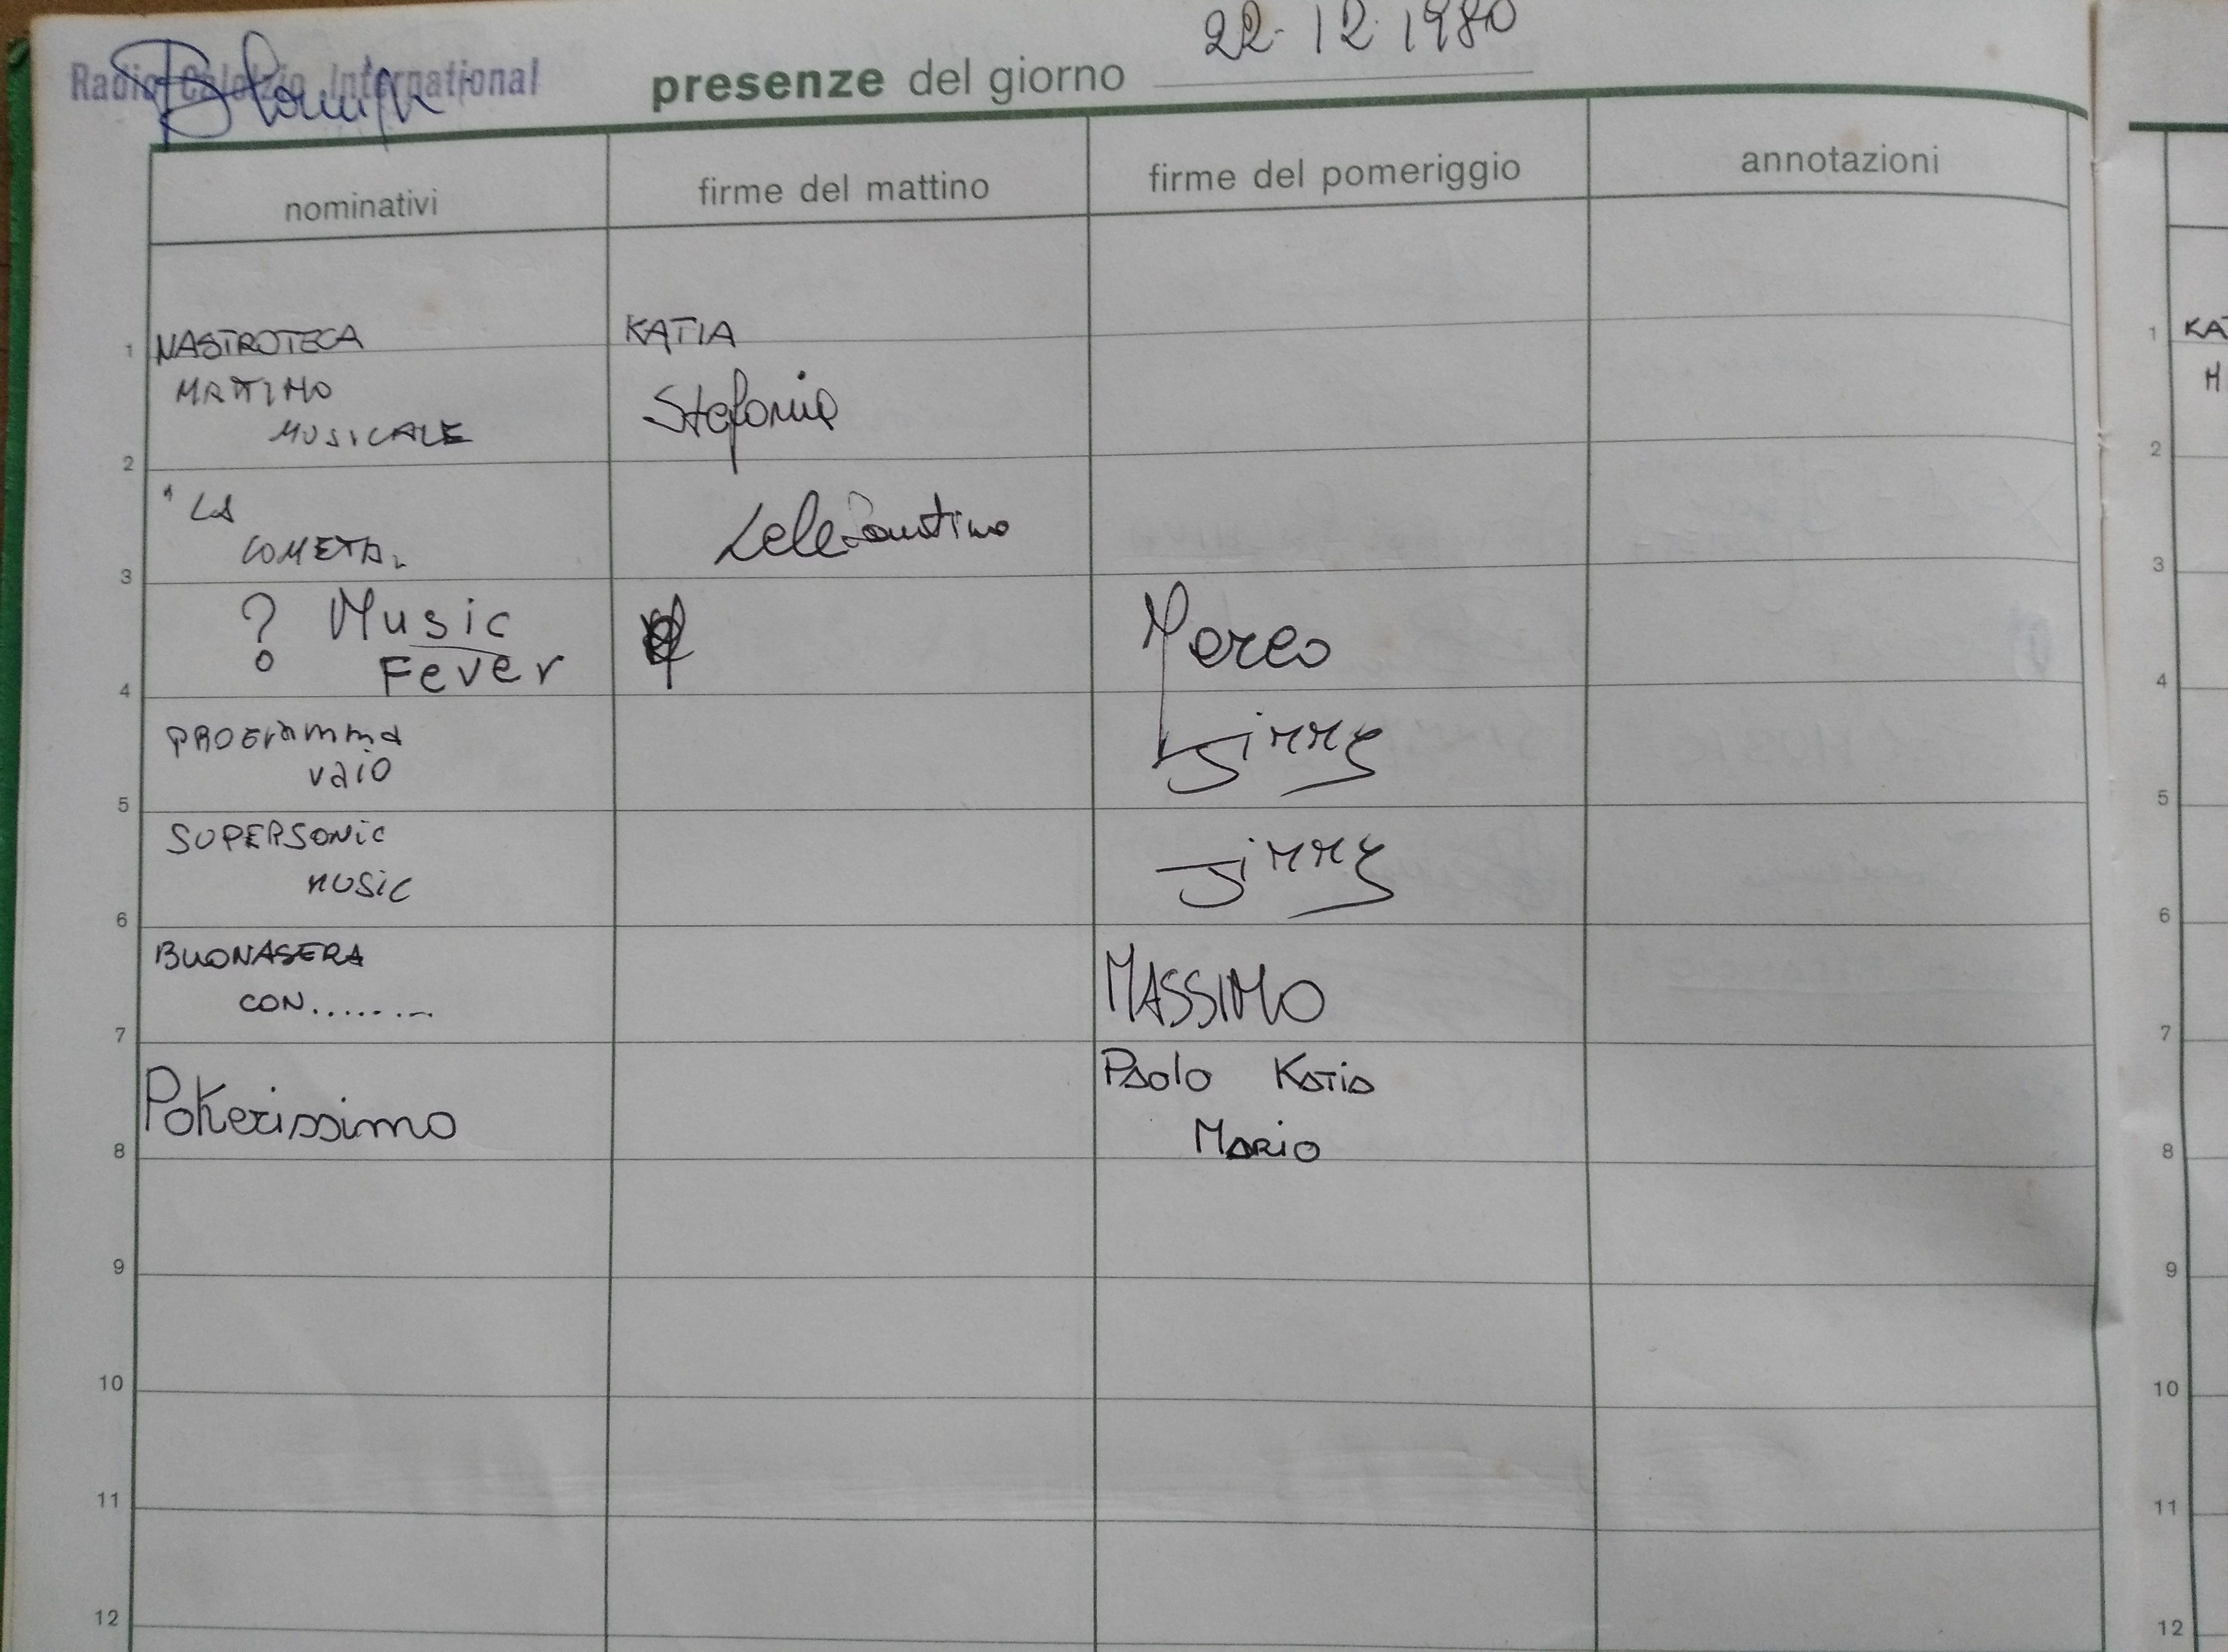 Radio Calolzio International
presenze del giorno 22.12.1980
nominativi firme del mattino firme del pomeriggio annotazioni
1 NASTROTECA KATIA
MATTINO
MUSICALE Stefania
2
"LA
COMETA" Lele Faustino
3
? Music
Fever Marco
4
PROGramma
vaio Jimmy
5
SUPERSONIC
MUSIC Jimmy
6
BUONASERA
CON........ MASSIMO
7
Pokerissimo Paolo Katia
Mario
8
9
10
11
12
1 KAT
M
2
3
4
5
6
7
8
9
10
11
12